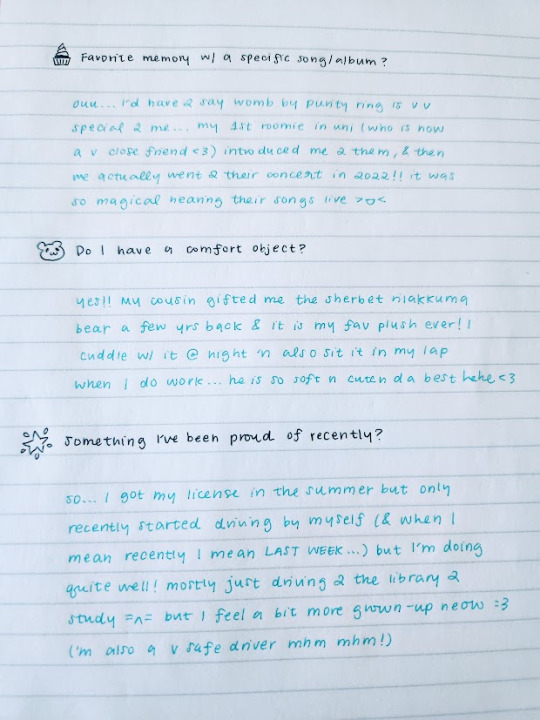 Favorite memory w/ a specific song/album?
ouu... I'd have 2 say womb by purity ring is v v
special 2 me... my 1st roomie in uni (who is now
a v close friend <3) introduced me 2 them, & then
we actually went 2 their concert in 2022!! it was
so magical hearing their songs live >▽<
Do I have a comfort object?
yes!! My cousin gifted me the sherbet rilakkuma
bear a few yrs back & it is my fav plush ever! I
cuddle w/ it @ night 'n also sit it in my lap
when I do work... he is so soft n cute n da best hehe <3
Something I've been proud of recently?
so... I got my license in the summer but only
recently started driving by myself (& when I
mean recently I mean LAST WEEK...) but I'm doing
quite well! mostly just driving 2 the library 2
study =^= but I feel a bit more grown-up neow :3
(I'm also a v safe driver mhm mhm!)